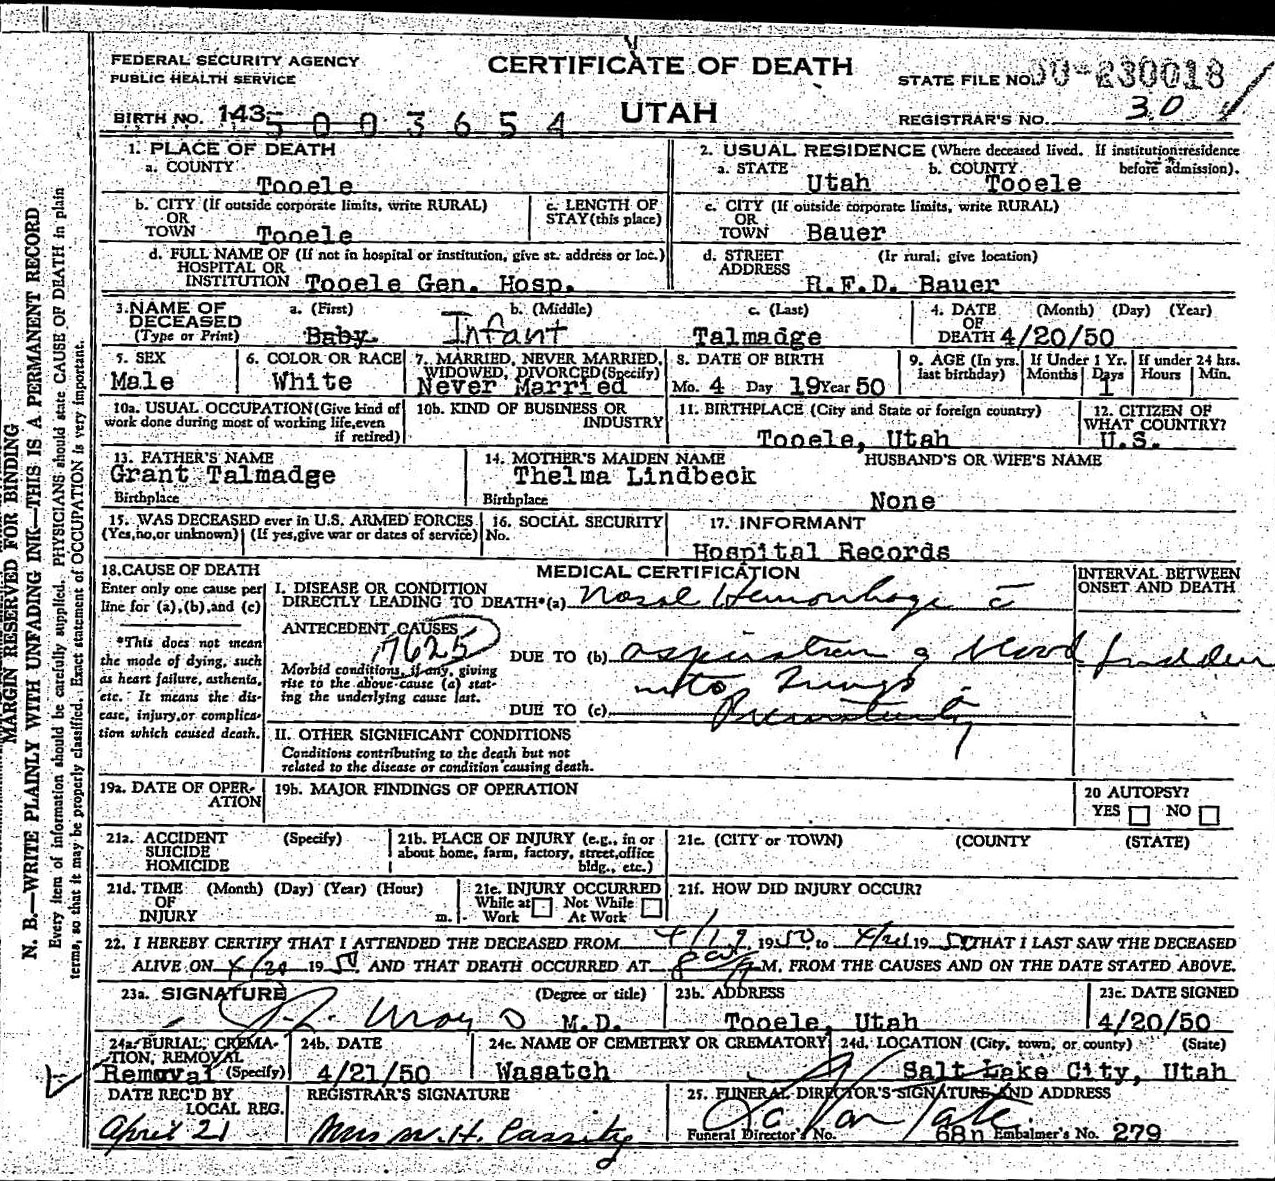 FEDERAL SECURITY AGENCY
PUBLIC HEALTH SERVICE
CERTIFICATE OF DEATH
STATE FILE NO. 50-230018
BIRTH NO. 143 5003654
UTAH
REGISTRAR'S NO. 30
1. PLACE OF DEATH
a. COUNTY Tooele
2. USUAL RESIDENCE (Where deceased lived. If institution:residence before admission).
a. STATE Utah b. COUNTY Tooele
b. CITY (If outside corporate limits, write RURAL) OR TOWN Tooele
c. LENGTH OF STAY (this place)
c. CITY (If outside corporate limits, write RURAL) OR TOWN Bauer
d. FULL NAME OF (If not in hospital or institution, give st. address or loc.) HOSPITAL OR INSTITUTION Tooele Gen. Hosp.
d. STREET ADDRESS (Ir rural, give location) R.F.D. Bauer
3. NAME OF DECEASED (Type or Print) a. (First) Baby b. (Middle) Infant c. (Last) Talmadge
4. DATE OF DEATH (Month) (Day) (Year) 4/20/50
5. SEX Male
6. COLOR OR RACE White
7. MARRIED, NEVER MARRIED, WIDOWED, DIVORCED (Specify) Never Married
8. DATE OF BIRTH Mo. 4 Day 19 Year 50
9. AGE (In yrs. last birthday) If Under 1 Yr. Months Days 1 If under 24 hrs. Hours Min.
10a. USUAL OCCUPATION (Give kind of work done during most of working life, even if retired)
10b. KIND OF BUSINESS OR INDUSTRY
11. BIRTHPLACE (City and State or foreign country) Tooele, Utah
12. CITIZEN OF WHAT COUNTRY? U.S.
13. FATHER'S NAME Grant Talmadge
Birthplace
14. MOTHER'S MAIDEN NAME Thelma Lindbeck
Birthplace
HUSBAND'S OR WIFE'S NAME None
15. WAS DECEASED ever in U.S. ARMED FORCES (Yes, no, or unknown) (If yes, give war or dates of service)
16. SOCIAL SECURITY No.
17. INFORMANT Hospital Records
18. CAUSE OF DEATH
Enter only one cause per line for (a), (b), and (c)
*This does not mean the mode of dying, such as heart failure, asthenia, etc. It means the disease, injury, or complication which caused death.
MEDICAL CERTIFICATION
INTERVAL BETWEEN ONSET AND DEATH
I. DISEASE OR CONDITION DIRECTLY LEADING TO DEATH* (a) Nasal Hemorrhage c̄
ANTECEDENT CAUSES 7625
Morbid conditions, if any, giving rise to the above cause (a) stating the underlying cause last.
DUE TO (b) aspiration of blood sudden
into lungs
DUE TO (c) Prematurity
II. OTHER SIGNIFICANT CONDITIONS
Conditions contributing to the death but not related to the disease or condition causing death.
19a. DATE OF OPERATION
19b. MAJOR FINDINGS OF OPERATION
20 AUTOPSY? YES NO
21a. ACCIDENT SUICIDE HOMICIDE (Specify)
21b. PLACE OF INJURY (e.g., in or about home, farm, factory, street, office bldg., etc.)
21c. (CITY or TOWN) (COUNTY (STATE)
21d. TIME OF INJURY (Month) (Day) (Year) (Hour) m.
21e. INJURY OCCURRED While at Work Not While At Work
21f. HOW DID INJURY OCCUR?
22. I HEREBY CERTIFY THAT I ATTENDED THE DECEASED FROM 4/19 1950, to 4/20 1950 THAT I LAST SAW THE DECEASED
ALIVE ON 4/20 1950 AND THAT DEATH OCCURRED AT M. FROM THE CAUSES AND ON THE DATE STATED ABOVE.
23a. SIGNATURE (Degree or title) M.D.
23b. ADDRESS Tooele, Utah
23c. DATE SIGNED 4/20/50
24a. BURIAL, CREMATION, REMOVAL (Specify) Removal
24b. DATE 4/21/50
24c. NAME OF CEMETERY OR CREMATORY Wasatch
24d. LOCATION (City, town, or county) (State) Salt Lake City, Utah
DATE REC'D BY LOCAL REG. April 21
REGISTRAR'S SIGNATURE Mrs W. H. Cassity
25. FUNERAL DIRECTOR'S SIGNATURE AND ADDRESS
Funeral Director's No. 68n Embalmer's No. 279
MARGIN RESERVED FOR BINDING
N. B.—WRITE PLAINLY WITH UNFADING INK—THIS IS A PERMANENT RECORD
Every item of information should be carefully supplied. PHYSICIANS should state CAUSE OF DEATH in plain
terms, so that it may be properly classified. Exact statement of OCCUPATION is very important.